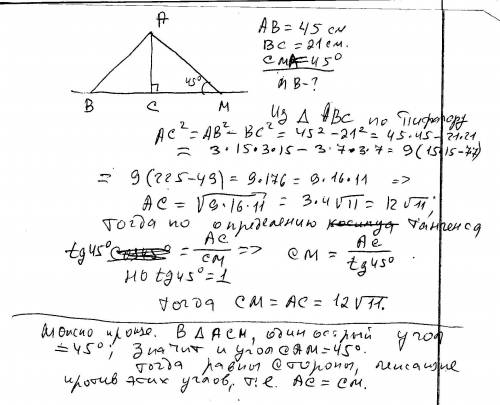 A
45°
B
C
M
AB = 45 см
BC = 21 см.
СМА = 45°
МВ - ?
Из Δ ABC по Пифагору
AC² = AB² - BC² = 45² - 21² = 45·45 - 21·21
= 3·15·3·15 - 3·7·3·7 = 9(15·15 - 7·7)
= 9(225 - 49) = 9·176 = 9·16·11 =>
AC = √9·16·11 = 3·4√11 = 12√11;
Тогда по определению косинуса тангенса
tg45° = AC/CM => CM = AC/tg45° .
Но tg45° = 1
Тогда CM = AC = 12√11.
Можно проще. В Δ ACM, один острый угол
= 45°; Значит и угол CAM = 45°.
Тогда равны стороны, лежащие
против этих углов, т.е. AC = CM.